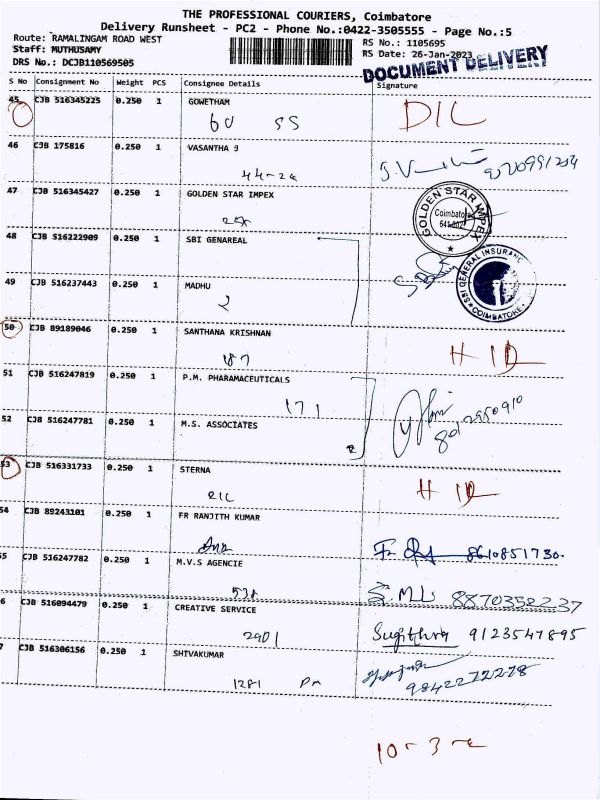 THE PROFESSIONAL COURIERS, Coimbatore
Delivery Runsheet - PC2 - Phone No.:0422-3505555 - Page No.:5
Route: RAMALINGAM ROAD WEST RS No.: 1105695
Staff: MUTHUSAMY RS Date: 26-Jan-2023
DRS No.: DCJB110569505 DOCUMENT DELIVERY
S No Consignment No Weight PCS Consignee Details Signature
45 CJB 516345225 0.250 1 GOWETHAM
60 SS DIL
46 CJB 175816 0.250 1 VASANTHA J
44-2a
47 CJB 516345427 0.250 1 GOLDEN STAR IMPEX
GOLDEN STAR IMPEX Coimbatore
48 CJB 516222909 0.250 1 SBI GENAREAL
SBI GENERAL INSURANC COIMBATORE
49 CJB 516237443 0.250 1 MADHU
2
50 CJB 89189046 0.250 1 SANTHANA KRISHNAN
187 H ID
51 CJB 516247819 0.250 1 P.M. PHARAMACEUTICALS
171
52 CJB 516247781 0.250 1 M.S. ASSOCIATES
8012950910
53 CJB 516331733 0.250 1 STERNA
H ID
54 CJB 89243101 0.250 1 FR RANJITH KUMAR
8610851730.
55 CJB 516247782 0.250 1 M.V.S AGENCIE
538 8870358237
6 CJB 516094479 0.250 1 CREATIVE SERVICE
2901 Sugithra 9123547895
7 CJB 516306156 0.250 1 SHIVAKUMAR
1281 pm 9842272278
10-3-